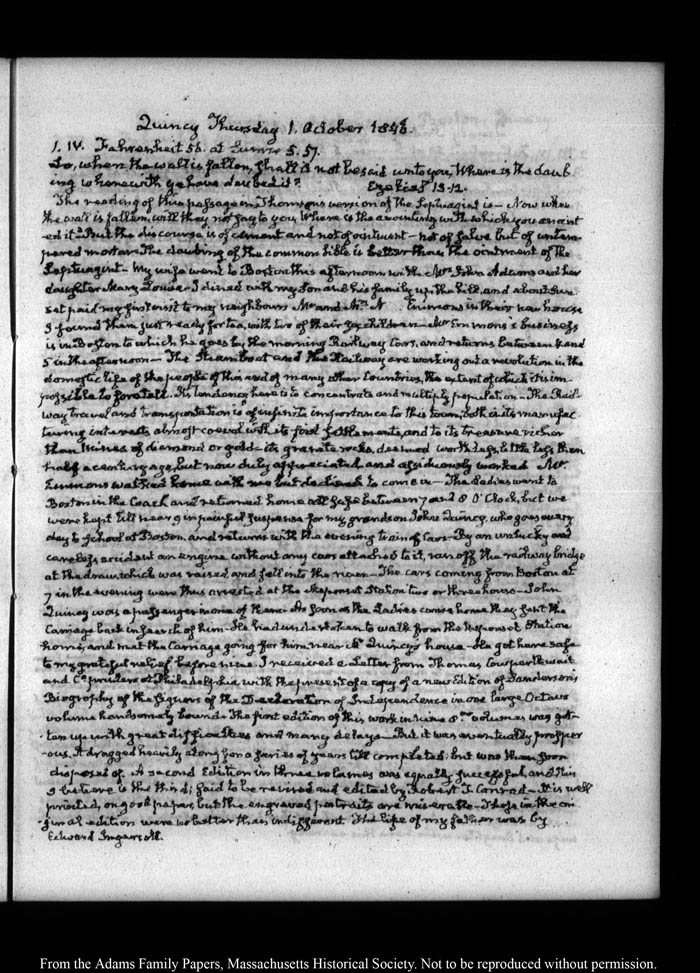 Quincy Thursday 1. October 1846.
1. IV. Fahrenheit 55. at Sunrise 5.57.
Lo, when the wall is fallen, shall it not be said unto you, Where is the daub
ing wherewith ye have daubed it? Ezekiel 13.12.
The reading of this passage in Thomsons version of the Septuagint is — Now when
the wall is fallen, will they not say to you, Where is the anointing with which you anoint
ed it? But the discourse is of cement and not of ointment — not of salve but of untem
pered mortar. The daubing of the common bible is better than the ointment of the
Septuagint — My wife went to Boston this afternoon with Mrs. John Adams and her
daughter Mary Louisa. I dined with my Son and his family up the hill, and about Sun
set paid my first visit to my neighbours Mr. and Mrs. N. Emmons in their new house
I found them just ready for tea, with two of their six children — Mr. Emmons's business
is in Boston to which he goes by the morning Railway Cars, and returns between 4 and
5 in the afternoon — The Steamboat and the Railway are working out a revolution in the
domestic life of the people of this and of many other Countries, the extent of which it is im
possible to foretell. Its tendency here is to concentrate and multiply population — The Rail
way travel and transportation is of infinite importance to this town, both in its manufac
turing interests almost coeval with its first settlements, and to its treasure richer
than Mines of diamond or gold — its granite rocks, deemed worthless, little less than
half a century ago, but now duly appreciated and assiduously worked. Mr.
Emmons walked home with me but declined to come in — The Ladies went to
Boston in the Coach and returned home all safe between 7 and 8 O'Clock, but we
were kept till near 9 in painful suspense for my grandson John Quincy, who goes every
day to School at Boston, and returns with the evening train of Cars — By an unlucky and
careless accident an engine without any cars attached to it, ran off the railway bridge
at the draw, which was raised and fell into the river — The cars coming from Boston at
7 in the evening were thus arrested at the Neponset Station two or three hours — John
Quincy was a passenger in one of them — As soon as the Ladies came home they sent the
Carriage back in search of him — He had undertaken to walk from the Neponset Station
home, and met the Carriage going for him, near Mr. Quincy's house — He got here safe
to my grateful relief before nine. I received a Letter from Thomas Cowperthwait
and Co. printers at Philadelphia with the present of a copy of a new Edition of Sanderson's
Biography of the Signers of the Declaration of Independence in one large Octavo
volume handsomely bound — The first edition of this work in nine 8vo. volumes was got
ten up with great difficulties and many delays — But it was eventually prosper
ous. It dragged heavily along for a series of years till completed; but was then soon
disposed of. A second Edition in three volumes was equally successful, and this
I believe is the third; said to be revised and edited by Robert T. Conrad — It is well
printed, on good paper, but the engraved portraits are miserable — Those in the ori
ginal edition were no better than indifferent. The life of my father was by
Edward Ingersoll.
From the Adams Family Papers, Massachusetts Historical Society. Not to be reproduced without permission.